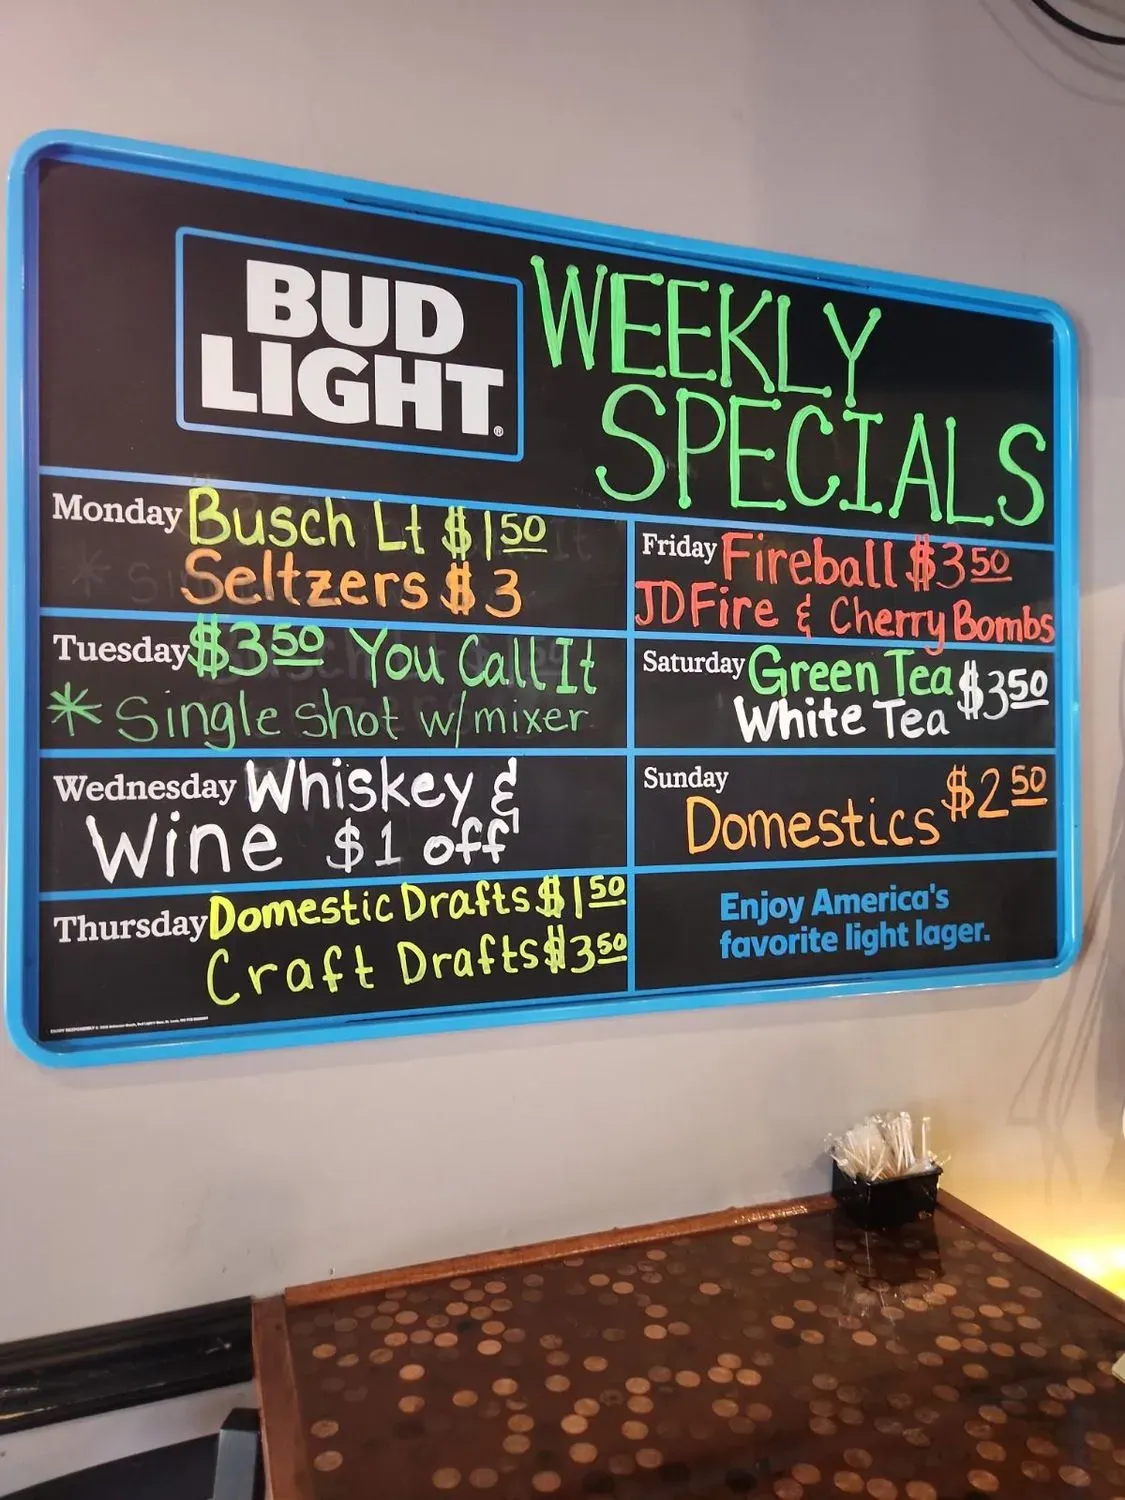 BUD
LIGHT®
WEEKLY
SPECIALS
Monday Busch Lt $1 50
Seltzers $3
Tuesday $3 50 You Call It
* Single shot w/mixer
Wednesday Whiskey &
Wine $1 off
Thursday Domestic Drafts $1 50
Craft Drafts $3 50
Friday Fireball $3 50
JD Fire & Cherry Bombs
Saturday Green Tea $3 50
White Tea
Sunday $2 50
Domestics
Enjoy America's
favorite light lager.